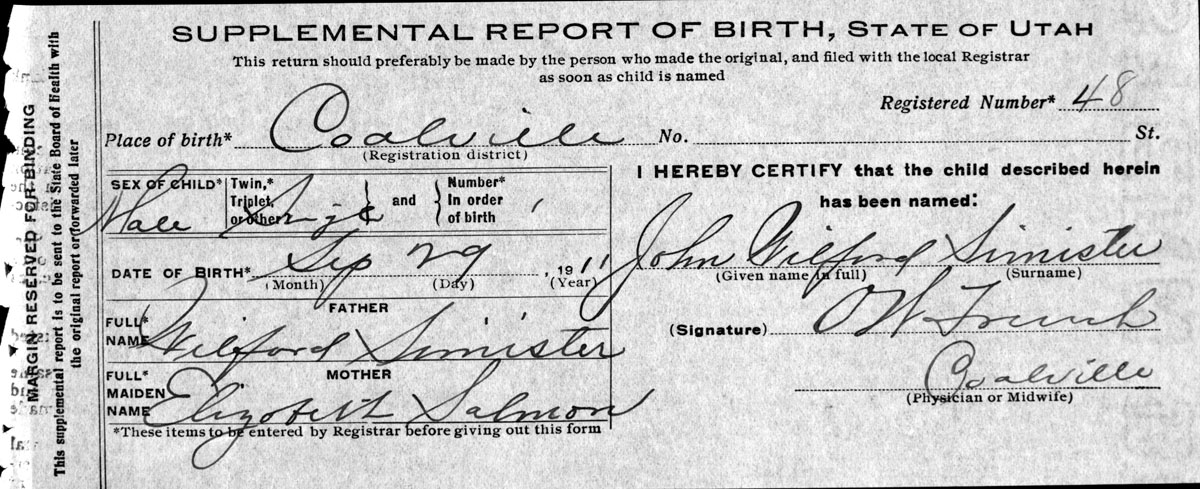 SUPPLEMENTAL REPORT OF BIRTH, STATE OF UTAH
This return should preferably be made by the person who made the original, and filed with the local Registrar
as soon as child is named
Registered Number* 48
Place of birth* Coalville No. St.
(Registration district)
SEX OF CHILD* Male
Twin,* Triplet, or other Single } and { Number* In order of birth 1
DATE OF BIRTH* Sep 29, 1911
(Month) (Day) (Year)
FATHER
FULL* NAME Wilford Simister
MOTHER
FULL* MAIDEN NAME Elizabeth Salmon
*These items to be entered by Registrar before giving out this form
I HEREBY CERTIFY that the child described herein
has been named:
John Wilford Simister
(Given name in full) (Surname)
(Signature) O W French
Coalville
(Physician or Midwife)
MARGIN RESERVED FOR BINDING
This supplemental report is to be sent to the State Board of Health with
the original report or forwarded later